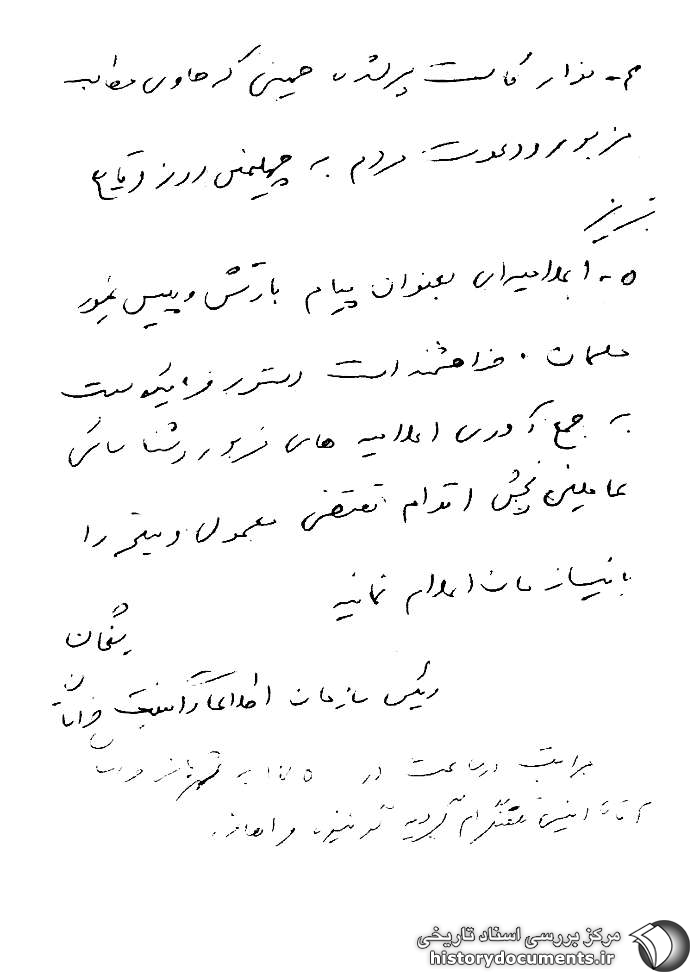 ۴- نوار کاست پرشده خمینی که حاوی مطالب
مزبور و دعوت مردم به چهلمین روز وقایع
تبریز
۵- اعلامیه‌ای بعنوان پیام بارتش و پلیس غیور
مسلمان. خواهشمند است دستور فرمائید نسبت
به جمع آوری اعلامیه های مزبور و شناسائی
عاملین پخش اقدام مقتضی معمول و نتیجه را
باین سازمان اعلام نمایند
رئیس سازمان اطلاعات و امنیت خراسان
مراتب در ساعت در
مرکز بررسی اسناد تاریخی
historydocuments.ir